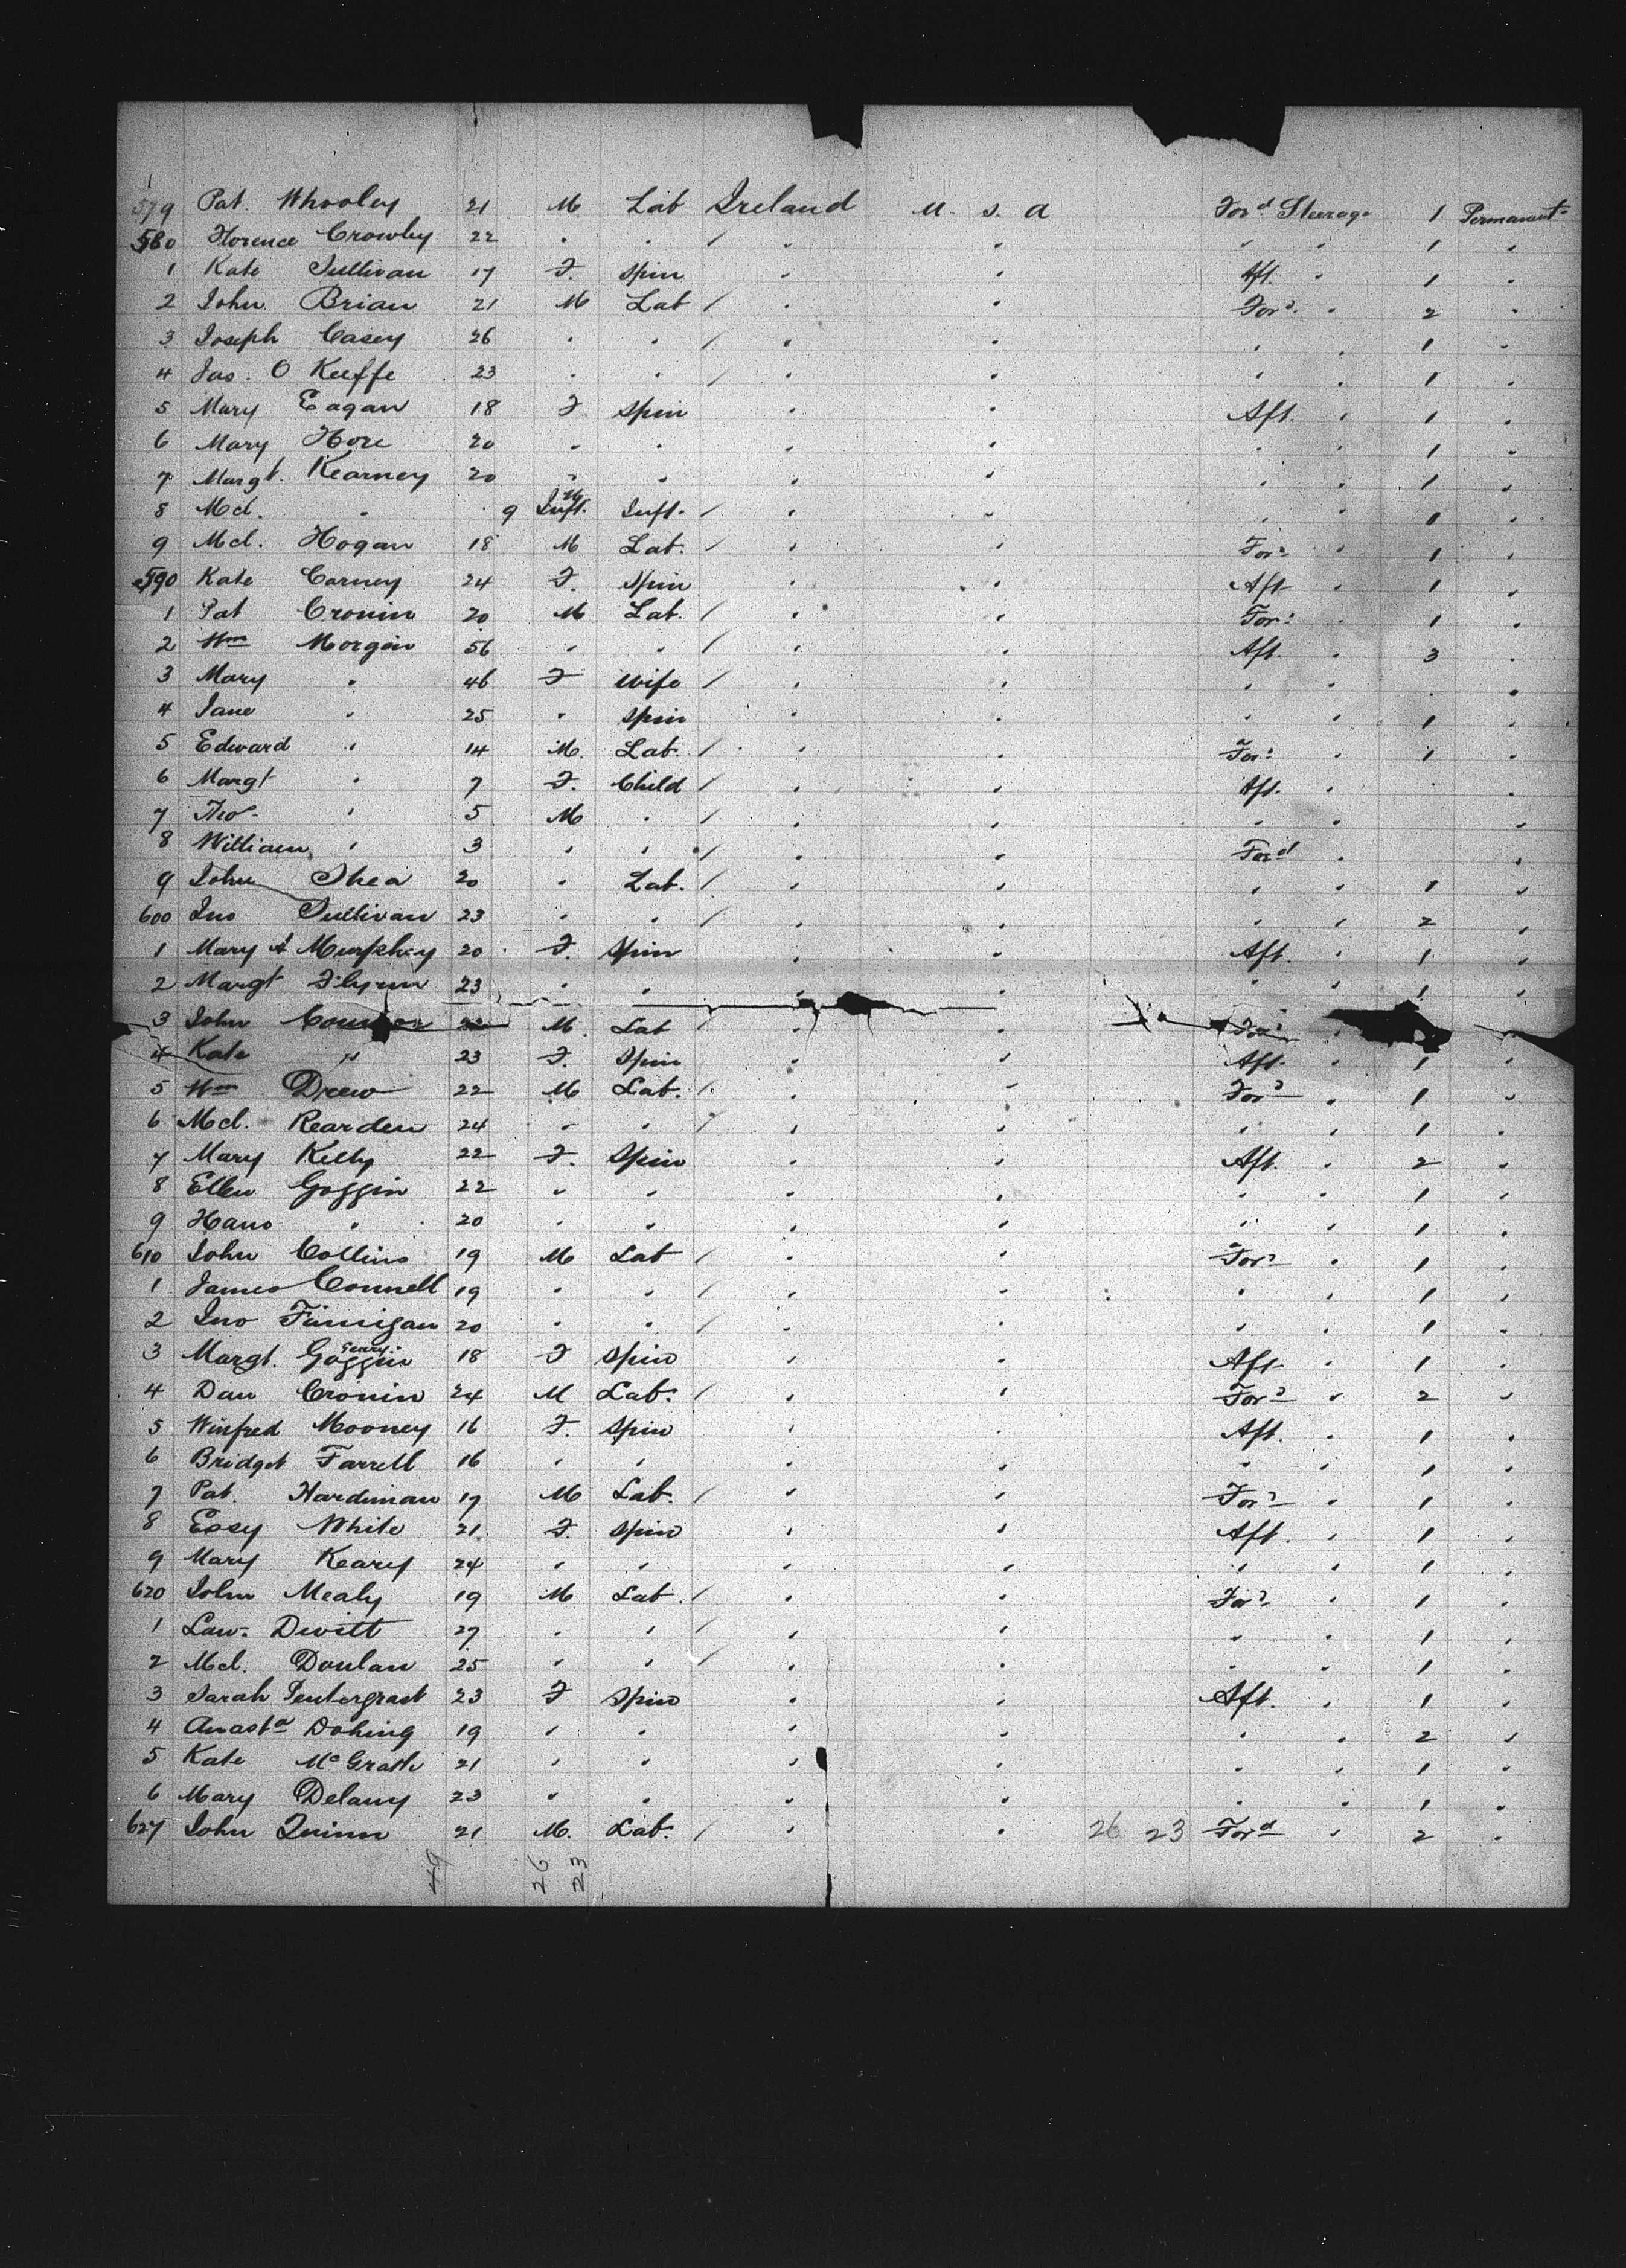 579 Pat. Whooley 21 M Lab Ireland U. S. A For^d Steerage 1 Permanent
580 Florence Crowley 22 " " / " " " " 1 "
1 Kate Sullivan 17 F. Spin " " Aft. " 1 "
2 John Brian 21 M Lab / " " For^d " 2 "
3 Joseph Casey 26 " " / " " " " 1 "
4 Jas. O Keeffe 23 " " / " " " " 1 "
5 Mary Eagan 18 F. Spin " " Aft. " 1 "
6 Mary Hore 20 " " " " " " 1 "
7 Margt. Kearney 20 " " " " " " 1 "
8 Mcl. " 9 Inft. M Inft. / " " " " 1 "
9 Mcl. Hogan 18 M Lab. / " " For^d " 1 "
590 Kate Carney 24 F. Spin " " Aft " 1 "
1 Pat Cronin 20 M Lab. / " " For^d " 1 "
2 Wm Morgan 56 " " / " " Aft. " 3 "
3 Mary " 46 F Wife / " " " " "
4 Jane " 25 " Spin " " " " 1 "
5 Edward " 14 M. Lab. / " " For^d " 1 "
6 Margt " 7 F. Child / " " Aft. " "
7 " 5 M " / " " " " "
8 William " 3 " " / " " For^d " "
9 John Shea 20 " Lab. / " " " " 1 "
600 Jno Sullivan 23 " " / " " " " 2 "
1 Mary A Murphy 20 F. Spin " " Aft. " 1 "
2 Margt Flynn 23 " " " " " " 1 "
3 John M. Lab / " " For^d "
4 Kate " 23 F. Spin " " Aft. " 1 "
5 Wm Drew 22 M Lab. / " " For^d " 1 "
6 Mcl. Rearden 24 " " / " " " " 1 "
7 Mary Kelly 22 F. Spin " " Aft. " 2 "
8 Ellen Goggin 22 " " " " " " 1 "
9 Hano " 20 " " " " " " 1 "
610 John Collins 19 M Lab / " " For^d " 1 "
1 James Connell 19 " " / " " " " 1 "
2 Jno Finnigan 20 " " / " " " " 1 "
3 Margt. Goggin Geary 18 F Spin " " Aft. " 1 "
4 Dan Cronin 24 M Lab. / " " For^d " 2 "
5 Winfred Mooney 16 F. Spin " " Aft. " 1 "
6 Bridget Farrell 16 " " " " " " 1 "
7 Pat. Hardiman 17 M Lab. / " " For^d " 1 "
8 Essy White 21 F. Spin " " Aft. " 1 "
9 Mary Keary 24 " " " " " " 1 "
620 John Mealy 19 M Lab. / " " For^d " 1 "
1 Law. Devitt 27 " " / " " " " 1 "
2 Mcl. Donlan 25 " " / " " " " 1 "
3 Sarah Pentergrast 23 F Spin " " Aft. " 1 "
4 Anast^a Dohing 19 " " " " " " 2 "
5 Kate McGrath 21 " " " " " " 1 "
6 Mary Delany 23 " " " " " " 1 "
627 John Quinn 21 M. Lab. / " " 26 23 For^d " 2 "
49 26 23